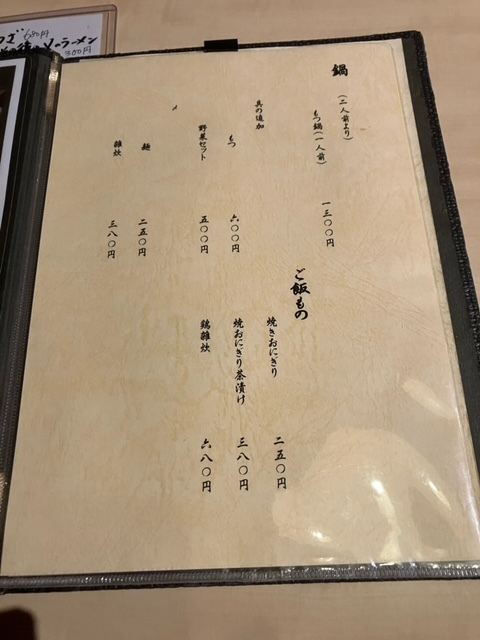 鍋
(二人前より)
もつ鍋(一人前) 一三〇〇円
具の追加
もつ 六〇〇円
野菜セット 五〇〇円
麺 二五〇円
雑炊 三八〇円
ご飯もの
焼きおにぎり 二五〇円
焼おにぎり茶漬け 三八〇円
鶏雑炊 六八〇円
680円
ラーメン